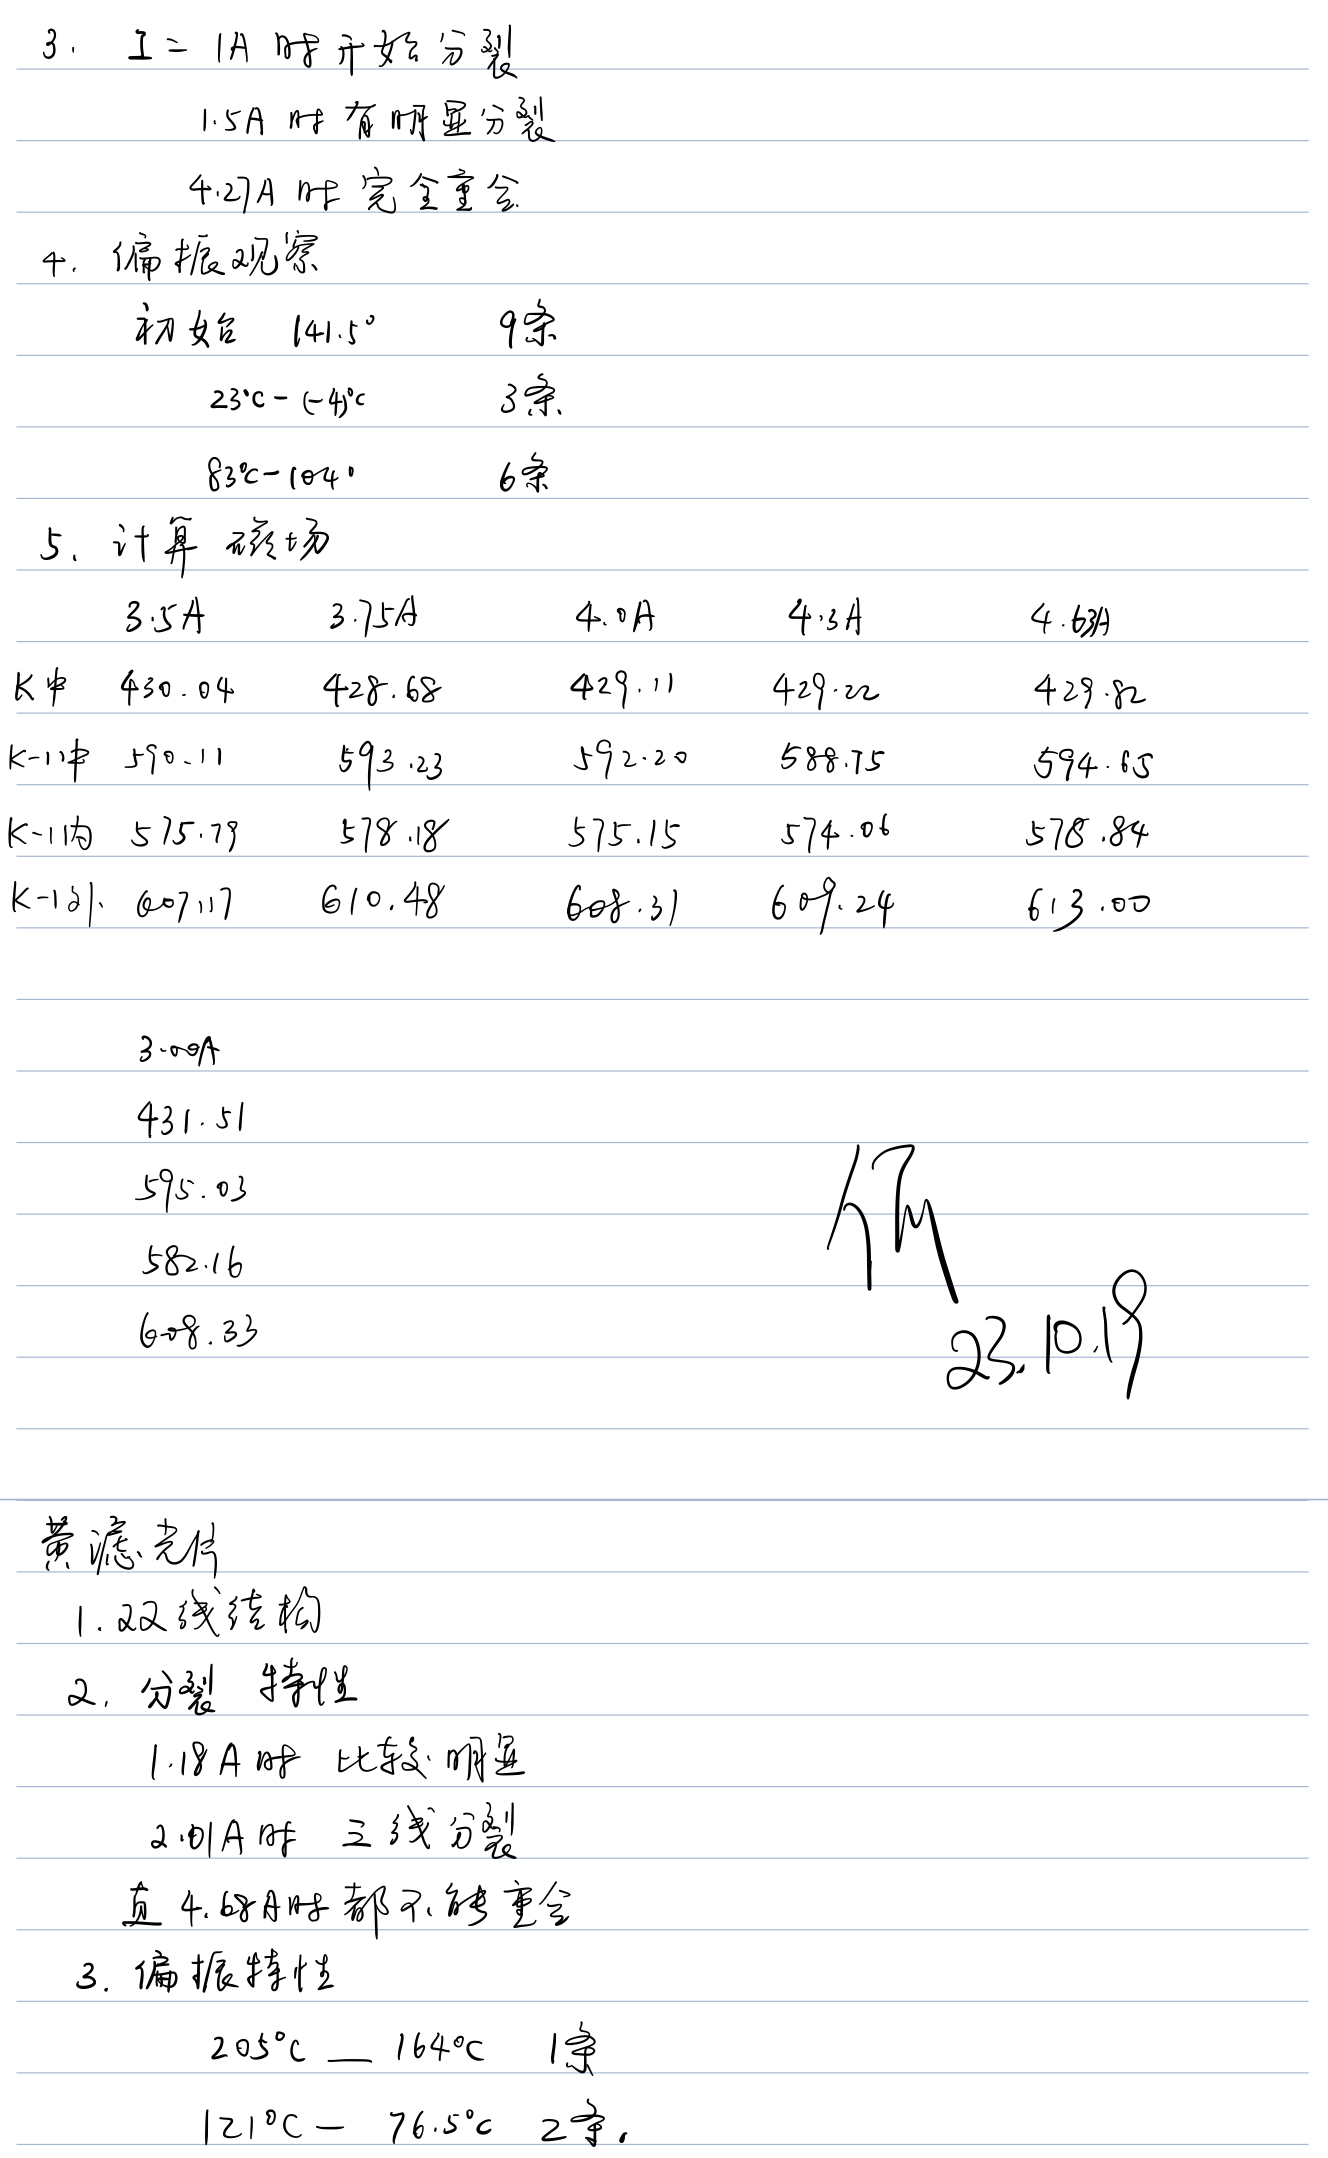 3. I = 1A 时开始分裂
1.5A 时有明显分裂
4.27A 时 完全重合
4. 偏振观察
初始 141.5° 9条
23°C - (-4)°C 3条
83°C - 104° 6条
5. 计算磁场
3.5A 3.75A 4.0A 4.3A 4.63A
K中 430.04 428.68 429.11 429.22 429.82
K-1中 590.11 593.23 592.20 588.75 594.65
K-1内 575.79 578.18 575.15 574.06 578.84
K-1外 607.17 610.48 608.31 609.24 613.00
3.00A
431.51
595.03
582.16
608.33
23.10.19
黄滤光片
1. 双线结构
2. 分裂 特性
1.18A时 比较明显
2.01A时 三线分裂
直 4.68A时都不能重合
3. 偏振特性
205°C — 164°C 1条
121°C — 76.5°C 2条.